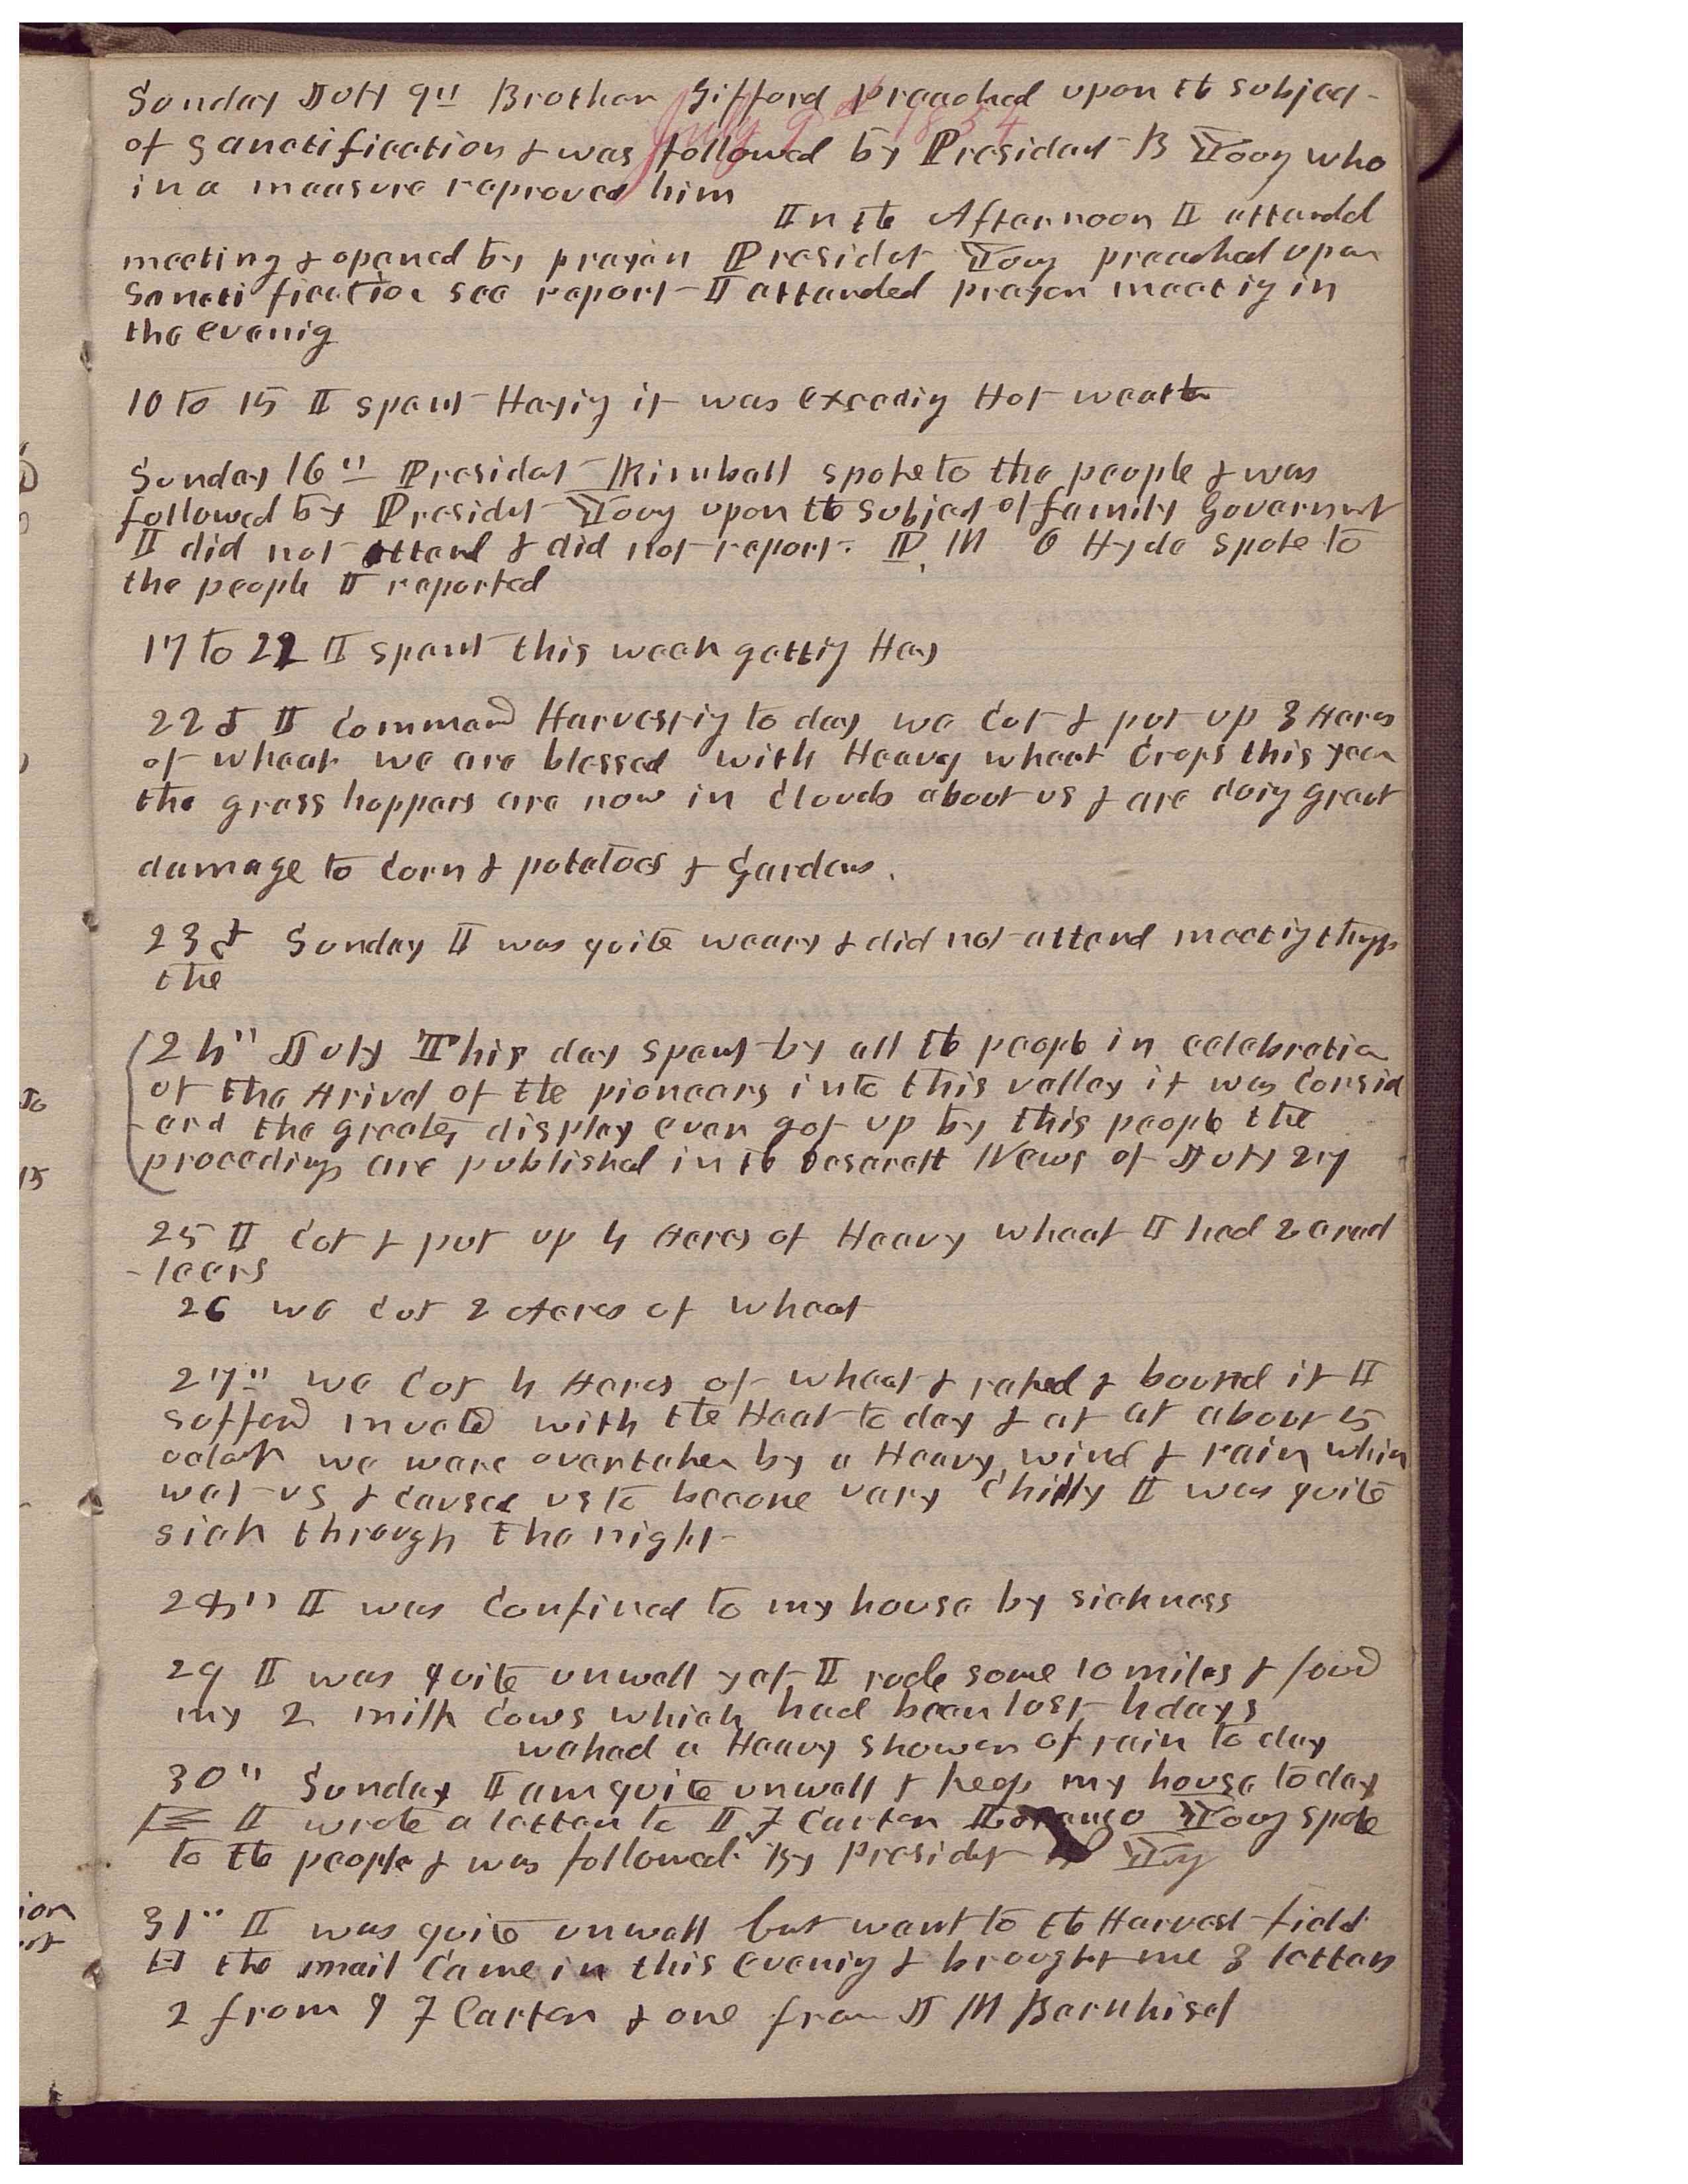 Sunday July 9th Brother Gifford Preached upon the subject
July 9th 1854
of Sanctification & was followed by President B Young who
in a measure reproved him
In the Afternoon I attendd
meeting & opened by prayer Presidet Young preached upon
Sanctification see report I attended prayer meetig in
the evenig
10 to 15 I spent Hayig it was exceedig Hot weath
Sunday 16th Presidet Kimball spoke to the people & was
followed by Presidet Young upon the subject of family Governmt
I did not attend & did not report. P.M O Hyde spoke to
the people I reported
17 to 22 I spent this week gettig Hay
22d I Commencd Harvestig to day we Cut & put up 3 Acres
of wheat we are blessed with Heavy wheat Crops this year
the grass hoppers are now in Clouds about us & are doig great
damage to Corn & potatoes & Gardens.
23d Sunday I was quite weary & did not attend meetig
the
24th July This day spent by all the people in celebration
of the Arival of the pioneers into this valley it was Consid
erd the greatest display ever got up by this people the
procedings are published in the Deserett News of July 27
25 I Cut & put up 4 Acres of Heavy wheat I had 2 crad
-leers
26 we Cut 2 Acres of wheat
27th we Cut 4 Acres of wheat & raked & bound it I
sufferd much with the Heat to day & at at about 5
oclok we were overtaken by a Heavy wind & rain which
wet us & caused us to become very Chilly I was quite
sick through the night
28th I was Confined to my house by sickness
29 I was quite unwell yet I rode some 10 miles & found
my 2 milk Cows which had been lost 4 days
we had a Heavy shower of rain to day
30th Sunday I am quite unwell & keep my house to day
I wrote a letter to I F Carter Young spoke
to the people & was followed By Presidet Young
31st I was quite unwell but went to the Harvest field
the mail Came in this evenig & brought me 3 letters
2 from I F Carter & one from J M Bernhisel